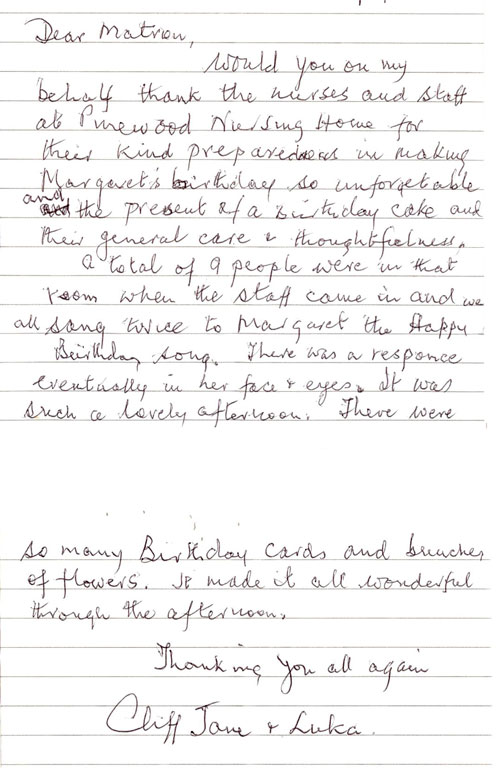 Dear Matron,
Would you on my
behalf thank the nurses and staff
at Pinewood Nursing Home for
their kind preparedness in making
Margaret's birthday so unforgetable
and the present of a Birthday cake and
their general care & thoughtfulness.
A total of 9 people were in that
room when the staff came in and we
all sang twice to Margaret the Happy
Beirthday song. There was a responce
eventually in her face & eyes. It was
such a lovely afternoon. There were
so many Birthday cards and bunches
of flowers. It made it all wonderful
through the afternoon.
Thanking you all again
Cliff Jane & Luka.